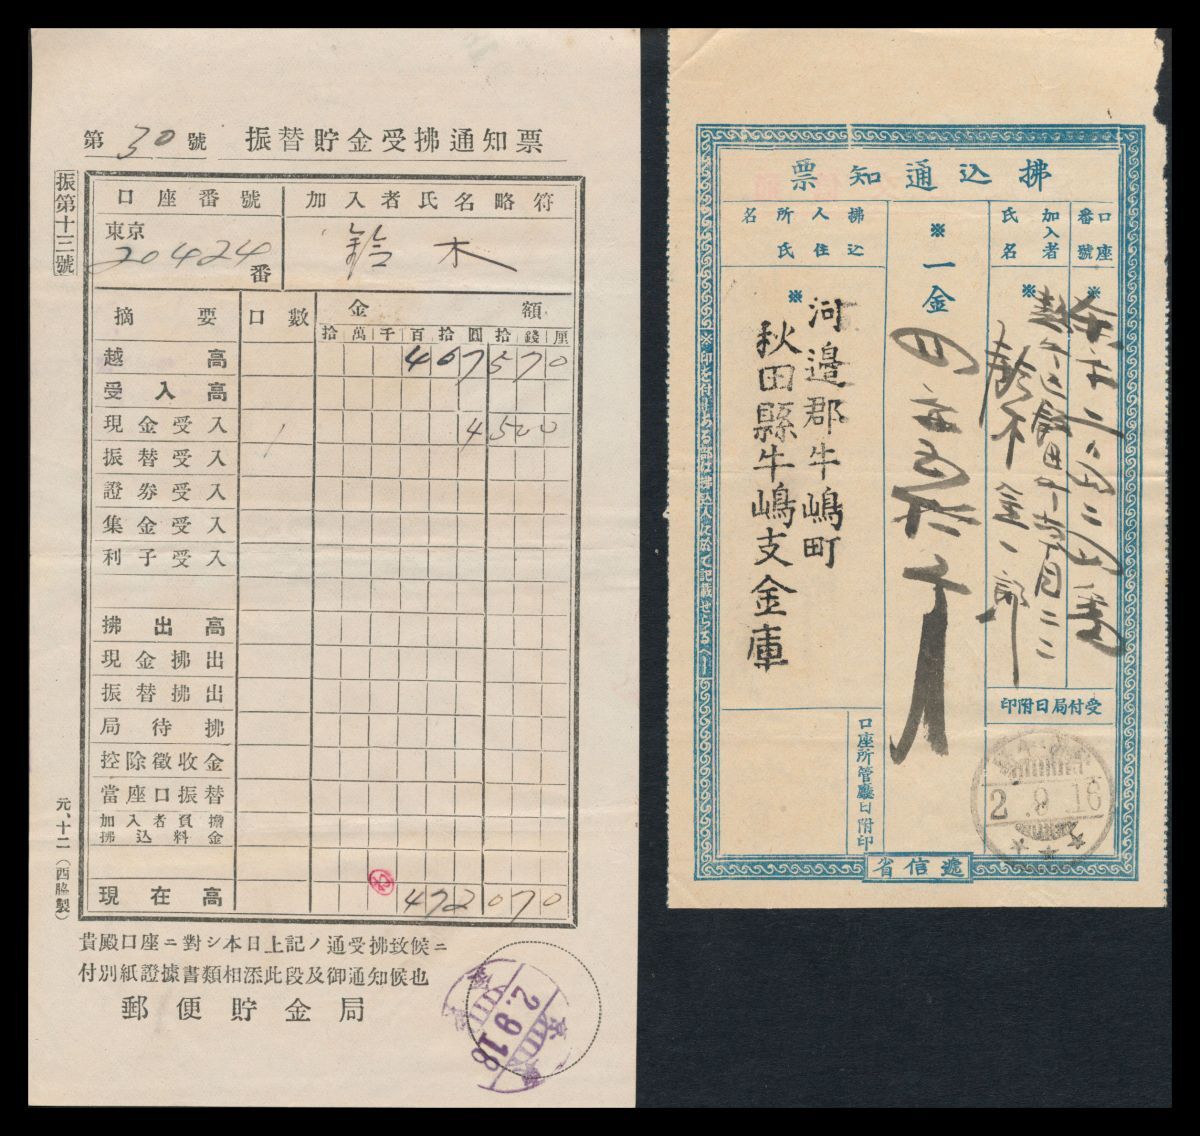 第 30 號 振替貯金受拂通知票
振第十三號
口座番號 加入者氏名略符
東京 20424 番 鈴木
摘要 口數 金額
拾 萬 千 百 拾 圓 拾 錢 厘
越高 467 570
受入高
現金受入 1 4 500
振替受入
證券受入
集金受入
利子受入
拂出高
現金拂出
振替拂出
局待拂
控除徵收金
當座口振替
加入者負擔拂込料金
現在高 472 070
元、十二（西脇製）
貴殿口座ニ對シ本日上記ノ通受拂致候ニ
付別紙證據書類相添此段及御通知候也
郵便貯金局
2.9.18
拂込通知票
口座番號
加入者氏名
※
鈴木金一郎
※
一金
拂込人住所氏名
※
河邊郡牛嶋町
秋田縣牛嶋支金庫
受付局日附印
2.9.16
口座所管廳日附印
※印を付したる部は拂込人に於て記載せらるべし
遞信省